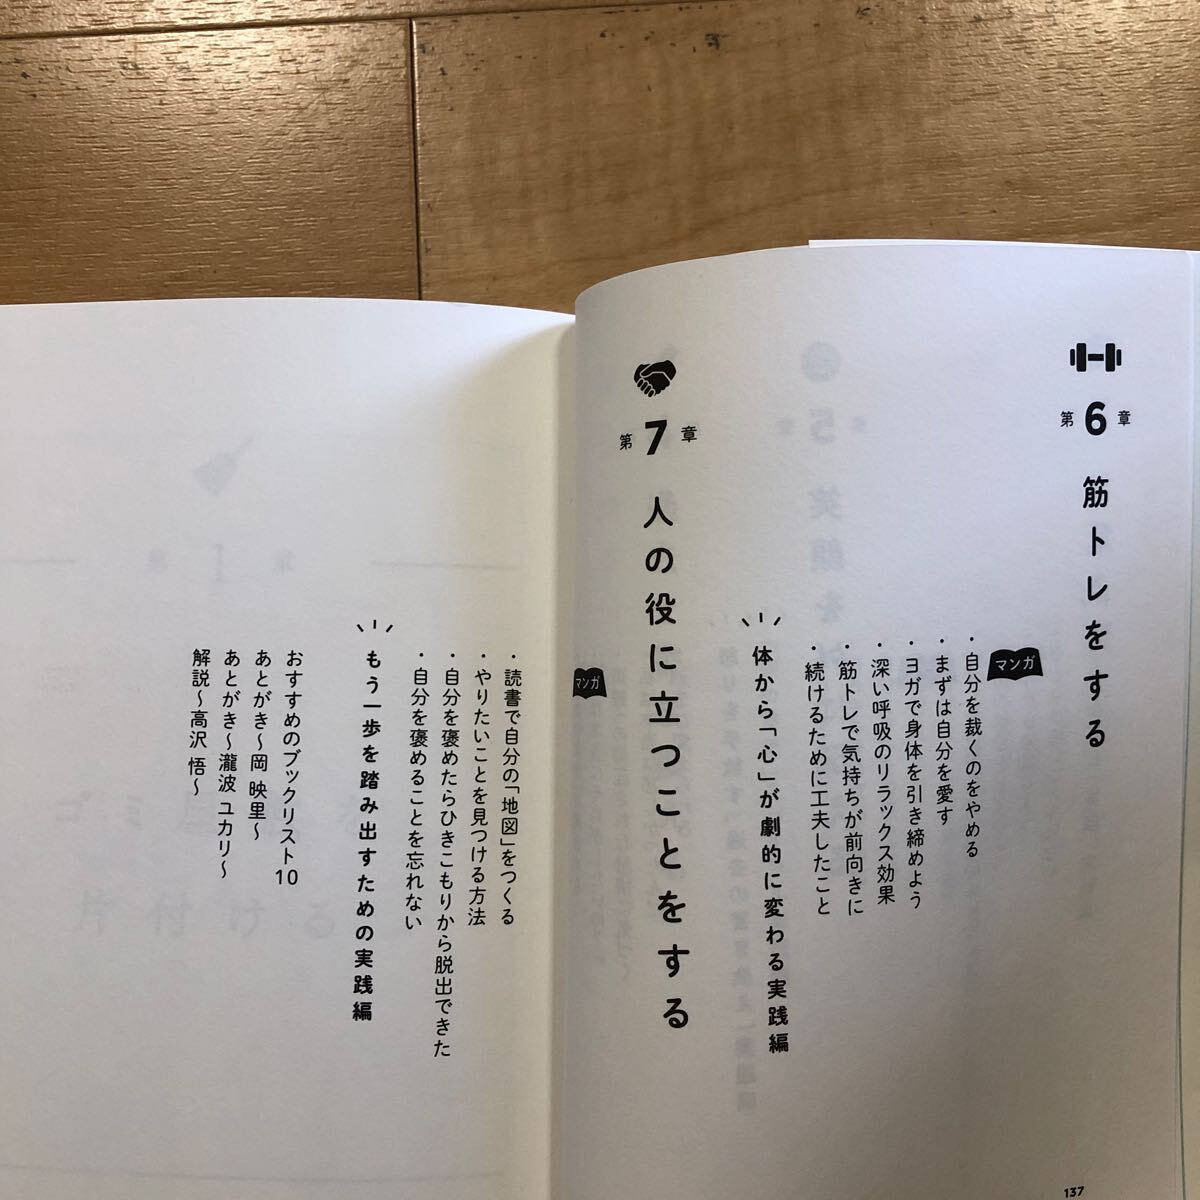 第6章
筋トレをする
マンガ
・自分を裁くのをやめる
・まずは自分を愛す
・ヨガで身体を引き締めよう
・深い呼吸のリラックス効果
・筋トレで気持ちが前向きに
・続けるために工夫したこと
体から「心」が劇的に変わる実践編
137
第7章
人の役に立つことをする
マンガ
・読書で自分の「地図」をつくる
・やりたいことを見つける方法
・自分を褒めたらひきこもりから脱出できた
・自分を褒めることを忘れない
もう一歩を踏み出すための実践編
おすすめのブックリスト10
あとがき〜岡 映里〜
あとがき〜瀧波 ユカリ〜
解説〜高沢 悟〜